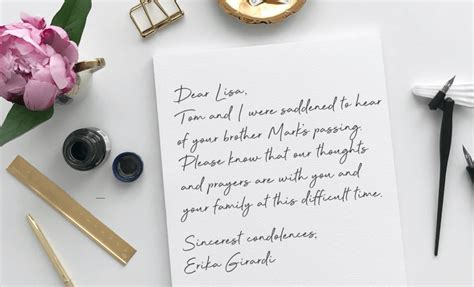 Dear Lisa,
Tom and I were saddened to hear
of your brother Mark's passing.
Please know that our thoughts
and prayers are with you and
your family at this difficult time.
Sincerest condolences,
Erika Girardi